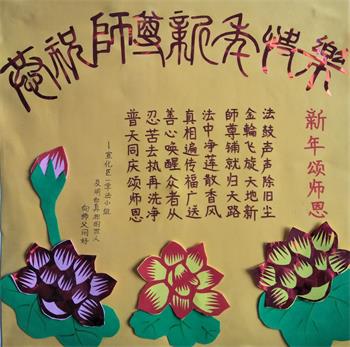 恭祝師尊新年快樂
新年颂师恩
法鼓声声除旧尘
金轮飞旋天地新
師尊铺就归天路
法中净莲散香风
真相遍传福广送
善心唤醒众者从
忍苦去执再洗净
普天同庆颂师恩
—宣化区一学法小组
及明白真相的世人
向师父问好